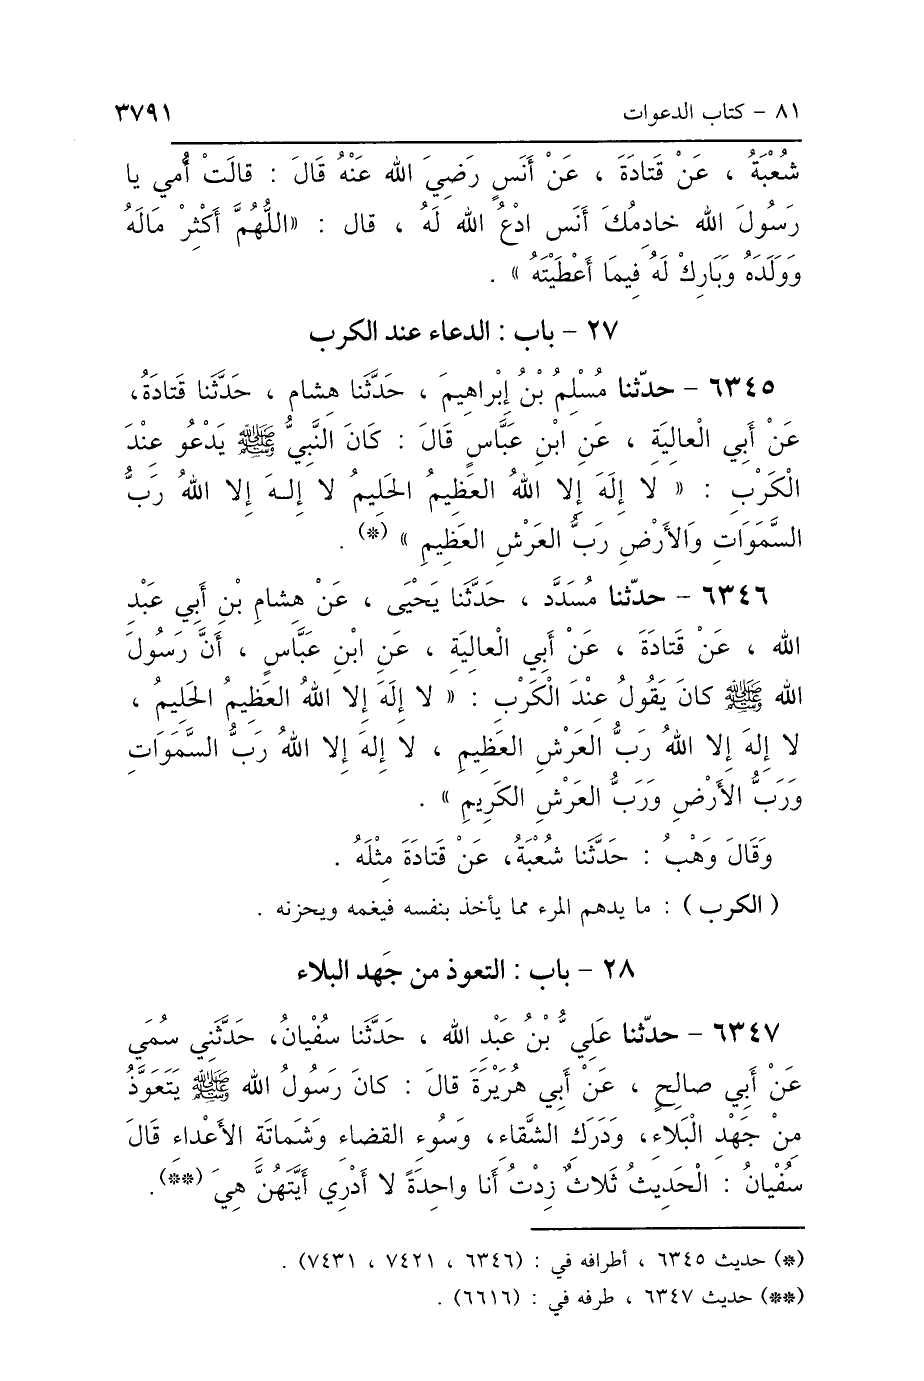 ٨١ - كتاب الدعوات ٣٧٩١
شُعْبَةُ ، عَنْ قَتادَةَ ، عَنْ أَنَسٍ رَضِيَ الله عَنْهُ قَالَ : قالَتْ أُمي يا
رَسُولَ الله خادِمُكَ أَنَس ادْعُ الله لَهُ ، قال : «اللَّهُمَّ أَكْثِرْ مَالَهُ
وَوَلَدَهُ وَبَارِكْ لَهُ فِيمَا أَعْطَيْتَهُ » .
٢٧ - باب : الدعاء عند الكرب
٦٣٤٥ - حدّثنا مُسْلِمُ بْنُ إِبْراهِيمَ ، حَدَّثَنا هِشام ، حَدَّثَنا قَتادَةُ،
عَنْ أَبي الْعالِيَةِ ، عَنِ ابْنِ عَبَّاسٍ قَالَ : كَانَ النَّبيُّ ﷺ يَدْعُو عِنْدَ
الْكَرْبِ : « لا إِلَهَ إِلا اللهُ العَظِيمُ الحَلِيمُ لا إِلـهَ إِلا اللهُ رَبُّ
السَّمَوَاتِ وَالأَرْضِ رَبُّ العَرْشِ العَظِيمِ » (*) .
٦٣٤٦ - حدّثنا مُسَدَّد ، حَدَّثَنا يَحْيَى ، عَنْ هِشامِ بْنِ أَبي عَبْدِ
الله ، عَنْ قَتادَةَ ، عَنْ أَبي الْعالِيَةِ ، عَنِ ابْنِ عَبَّاسٍ ، أَنَّ رَسُولَ
الله ﷺ كانَ يَقُولُ عِنْدَ الْكَرْبِ : « لا إِلَهَ إِلا اللهُ العَظِيمُ الحَلِيمُ ،
لا إِلهَ إِلا اللهُ رَبُّ العَرْشِ العَظِيمِ ، لا إِلهَ إِلا اللهُ رَبُّ السَّمَوَاتِ
وَرَبُّ الأَرْضِ وَرَبُّ العَرْشِ الكَرِيمِ » .
وَقَالَ وَهْبُ : حَدَّثَنا شُعْبَةُ، عَنْ قَتادَةَ مِثْلَهُ .
( الكرب ) : ما يدهم المرء مما يأخذ بنفسه فيغمه ويحزنه .
٢٨ - باب : التعوذ من جَهد البلاء
٦٣٤٧ - حدّثنا عَلَيُّ بْنُ عَبْدِ الله ، حَدَّثَنا سُفْيانُ، حَدَّثَنِي سُمَي
عَنْ أَبي صالِحٍ ، عَنْ أَبي هُرَيْرَةَ قالَ : كانَ رَسُولُ الله ﷺ يَتَعَوَّذُ
مِنْ جَهْدِ الْبَلاءِ، وَدَرَكِ الشَّقاءِ، وَسُوءِ القضاءِ وَشَماتَةِ الأعْداءِ قَالَ
سُفْيانُ : الْحَدِيثُ ثَلاثٌ زِدْتُ أَنا واحِدَةً لا أَدْرِي أَيَّتَهُنَّ هِيَ (**).
(*) حديث ٦٣٤٥ ، أطرافه في : (٦٣٤٦ ، ٧٤٢١ ، ٧٤٣١) .
(**) حديث ٦٣٤٧ ، طرفه في : (٦٦١٦) .